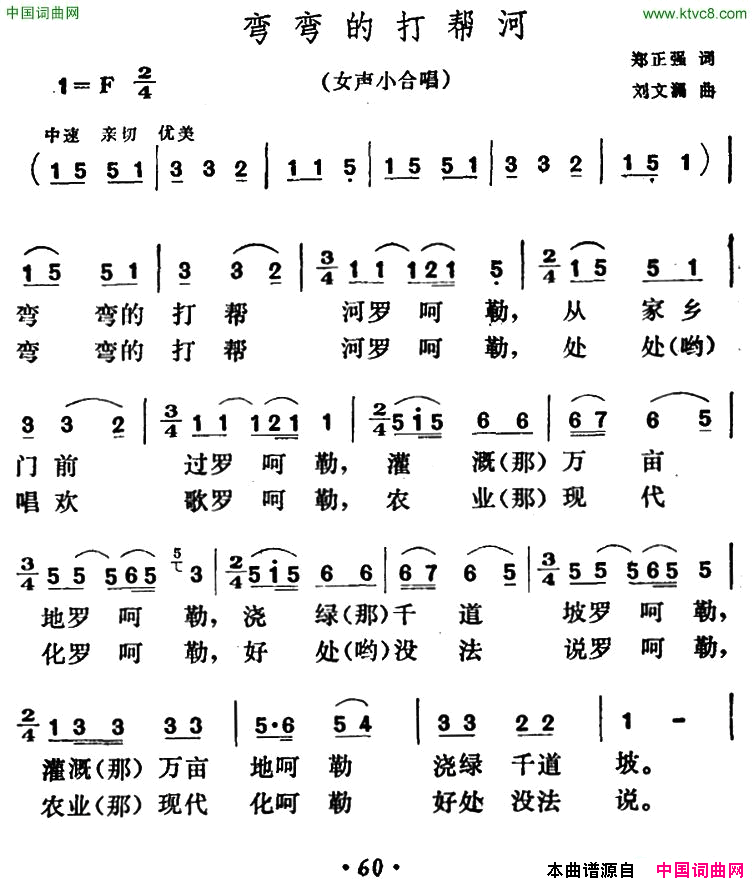 中国词曲网
www.ktvc8.com
弯弯的打帮河
郑正强 词
1=F 2/4
(女声小合唱)
刘文澜 曲
中速 亲切 优美
(1 5 5 1 | 3 3 2 | 1 1 5 | 1 5 5 1 | 3 3 2 | 1 5 1) |
1 5 5 1 | 3 3 2 | 3/4 1 1 1 2 1 5 | 2/4 1 5 5 1 |
弯 弯的 打 帮 河罗 呵 勒, 从 家 乡
弯 弯的 打 帮 河罗 呵 勒, 处 处(哟)
3 3 2 | 3/4 1 1 1 2 1 1 | 2/4 5 i 5 6 6 | 6 7 6 5 |
门前 过罗 呵 勒, 灌 溉(那)万 亩
唱欢 歌罗 呵 勒, 农 业(那)现 代
3/4 5 5 5 6 5 5 3 | 2/4 5 i 5 6 6 | 6 7 6 5 | 3/4 5 5 5 6 5 5 |
地罗 呵 勒, 浇 绿(那)千 道 坡罗 呵 勒,
化罗 呵 勒, 好 处(哟)没 法 说罗 呵 勒,
2/4 1 3 3 3 3 | 5·6 5 4 | 3 3 2 2 | 1 - |
灌溉(那)万亩 地呵 勒 浇绿 千道 坡。
农业(那)现代 化呵 勒 好处 没法 说。
·60·
本曲谱源自 中国词曲网